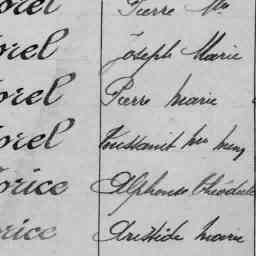 orel Pierre Mie
orel Joseph Marie
orel Pierre Marie
orel Toussaint
orice Alphonse Théodule
orice Aristide Marie